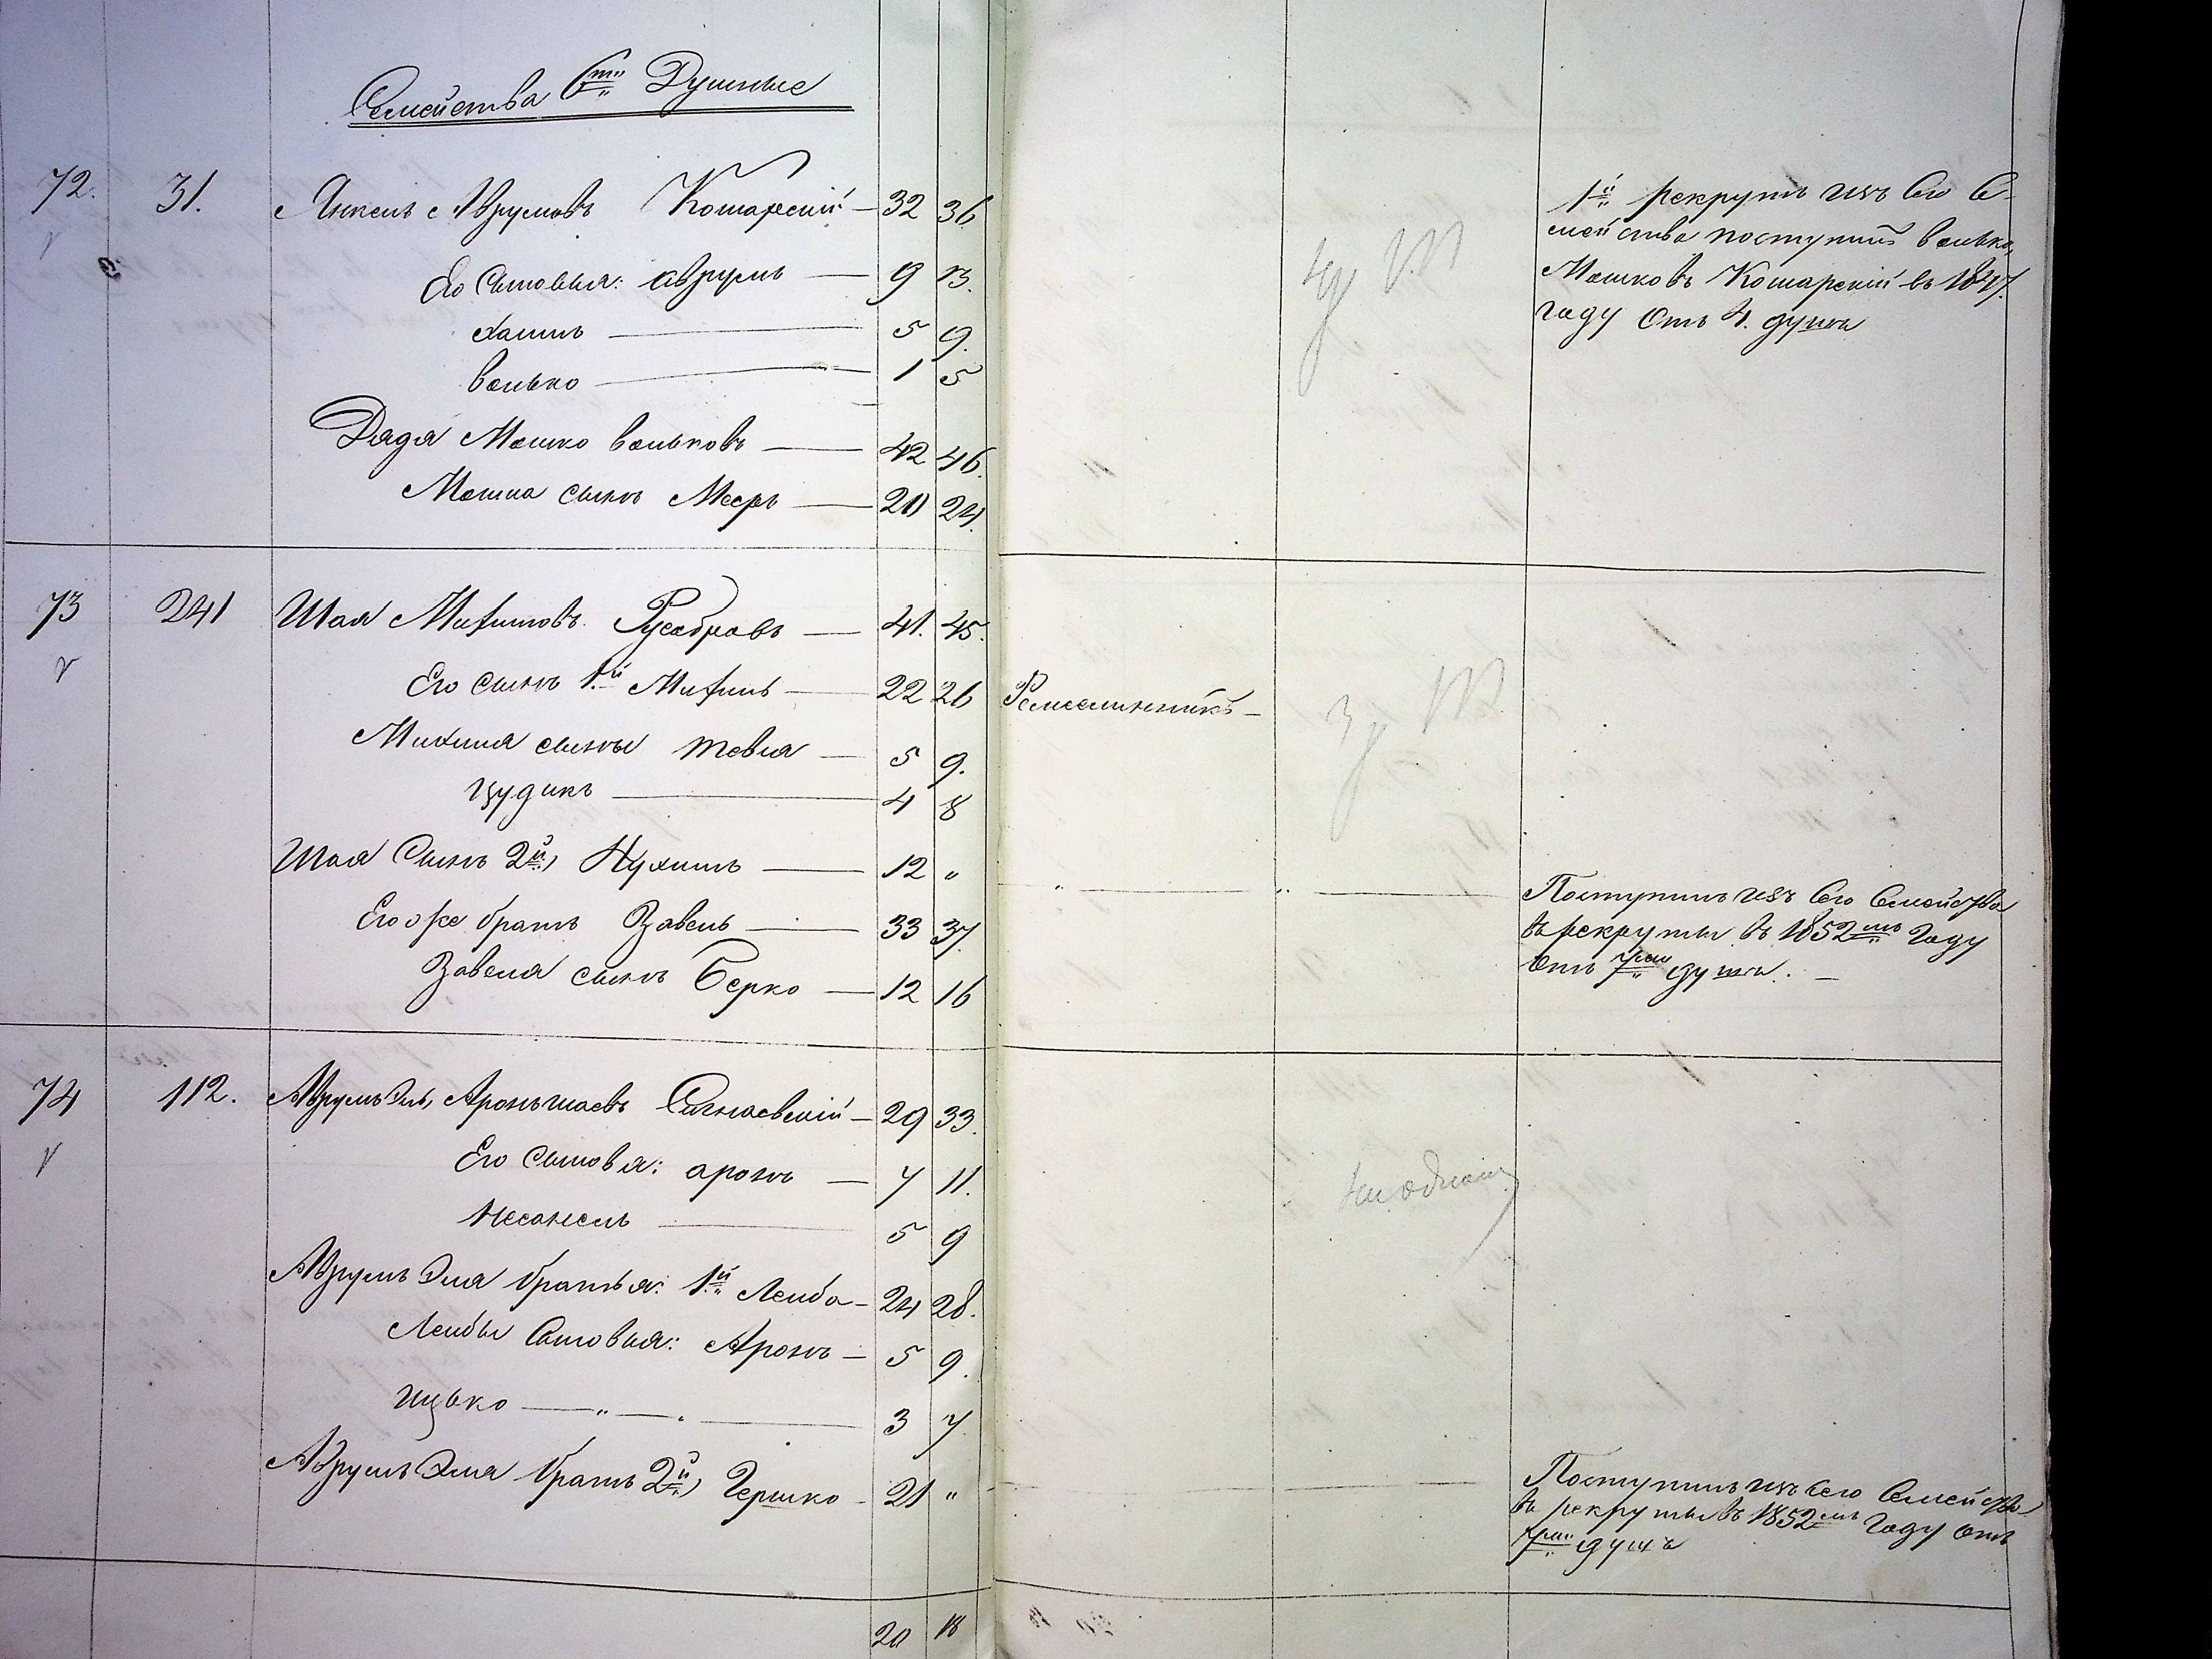 Семейства 6ти Душные
72. 31. Янкель Аврумовъ Кошарскій — 32 36
Его Сыновья: Аврумъ — 9 13.
Хаимъ — 5 9.
Волько — 1 5
Дядя Мошко Вольковъ — 42 46.
Мошка сынъ Мееръ — 20 24.
1й рекрутъ изъ Сего Се-
мейства поступилъ Волько
Мошковъ Кошарскій въ 1847.
году Отъ 4. душъ
73 241 Шая Михилевъ — 41. 45.
Его сынъ 1й Михиль — 22 26 Ремесленникъ —
Михиля сыны Тевья — 5 9.
Цудикъ — 4 8
Шая Сынъ 2й, Нухимъ — 12 „
Его же братъ Завель — 33 37.
Завеля сынъ Берко — 12 16
Поступилъ изъ Сего Семейства
въ рекруты въ 1852мъ Году
отъ 7ми душъ. —
74 112. Аврумъ Эль, Ароншаевъ — 29 33.
Его Сыновья: Аронъ — 7 11.
Несанель — 5 9
ни одного
Аврумъ Эля братья: 1й Лейба — 24 28.
Лейбы Сыновья: Аронъ — 5 9.
Ицько — „ — „ — 3 7.
Аврумъ Эля братъ 2й, Гершко — 21 „
Поступилъ изъ сего Семейства
въ рекруты въ 1852мъ Году отъ
7ми душъ
20 18